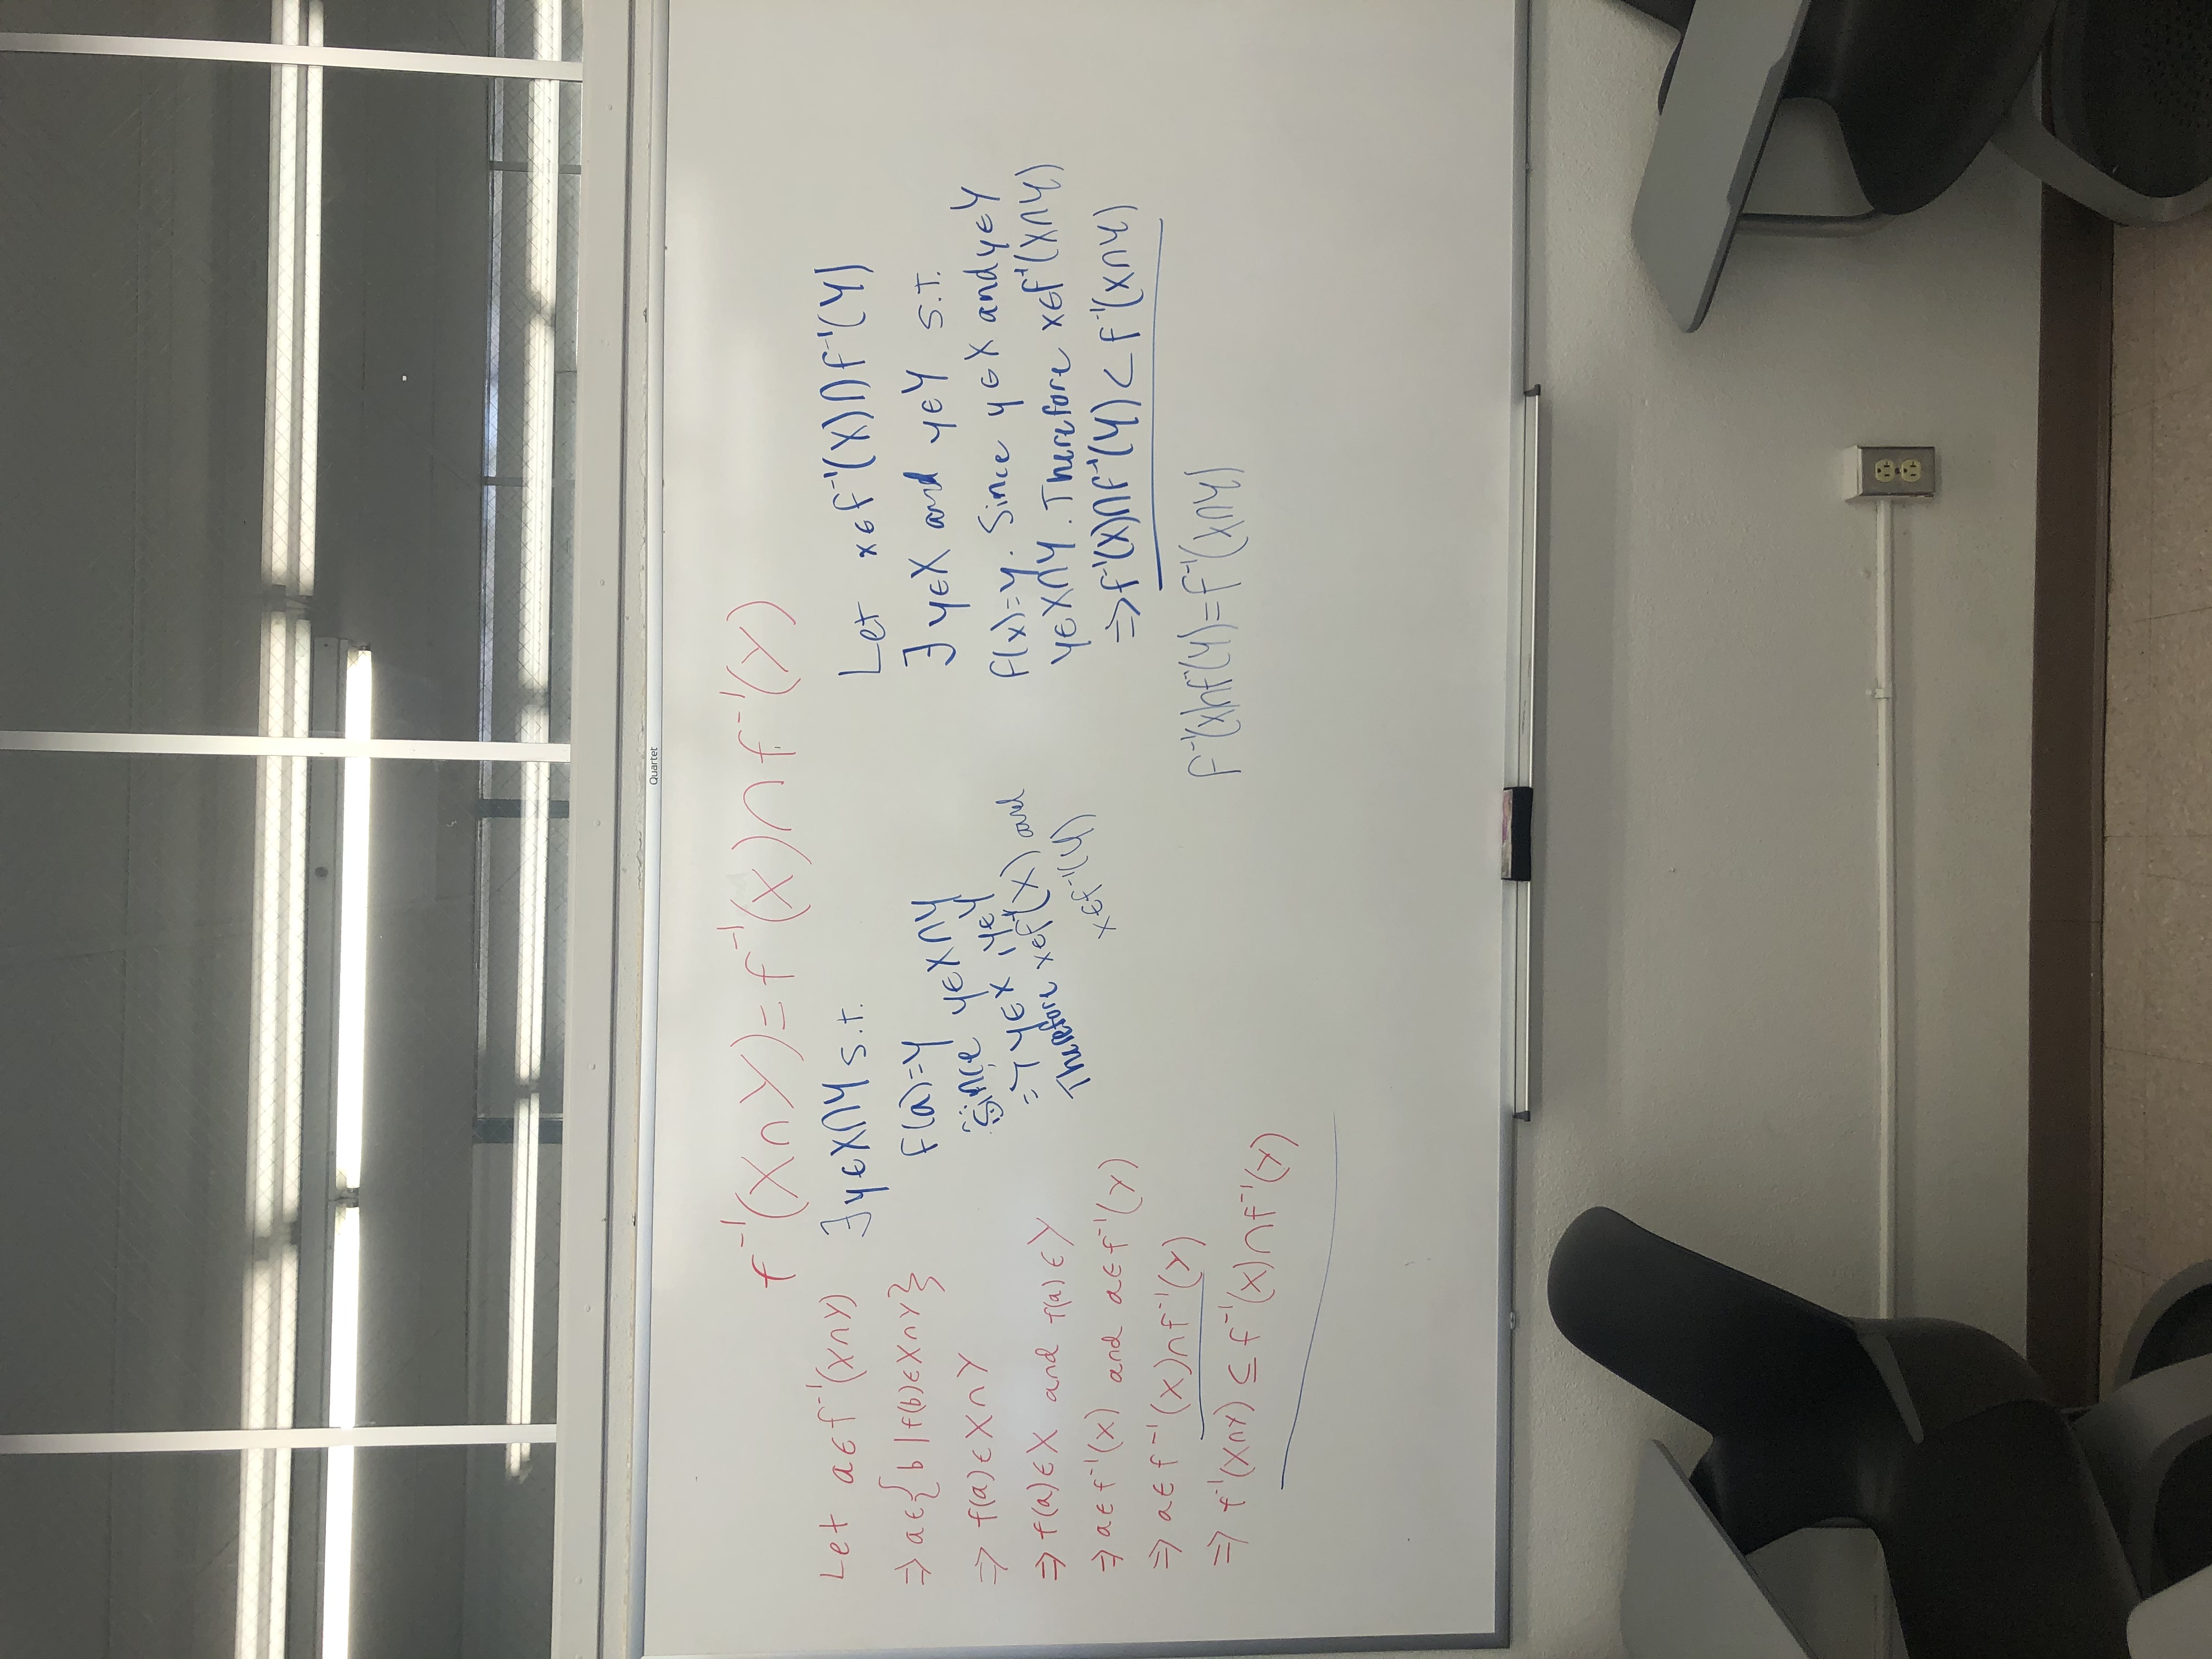 Quartet
f⁻¹(X∩Y)=f⁻¹(X)∩f⁻¹(Y)
Let a∈f⁻¹(X∩Y)
⇒ a∈{b | f(b)∈X∩Y}
⇒ f(a)∈X∩Y
⇒ f(a)∈X and f(a)∈Y
⇒ a∈f⁻¹(X) and a∈f⁻¹(Y)
⇒ a∈f⁻¹(X)∩f⁻¹(Y)
⇒ f⁻¹(X∩Y) ⊆ f⁻¹(X)∩f⁻¹(Y)
∃y∈X∩Y s.t.
f(a)=y
Since y∈X∩Y
⇒ y∈X, y∈Y
Therefore x∈f⁻¹(X) and
x∈f⁻¹(Y)
Let x∈f⁻¹(X)∩f⁻¹(Y)
∃ y∈X and y∈Y s.t.
f(x)=y. Since y∈X and y∈Y
y∈X∩Y. Therefore x∈f⁻¹(X∩Y)
⇒f⁻¹(X)∩f⁻¹(Y)⊂f⁻¹(X∩Y)
f⁻¹(X)∩f⁻¹(Y)=f⁻¹(X∩Y)